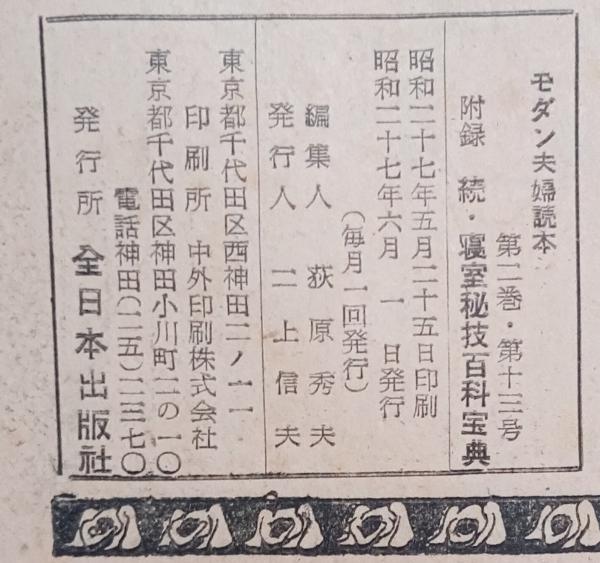 モダン夫婦読本
第二巻・第十三号
附録 続・寝室秘技百科宝典
昭和二十七年五月二十五日印刷
昭和二十七年六月 一 日発行
(毎月一回発行)
編集人 荻原秀夫
発行人 二上信夫
東京都千代田区西神田二ノ一一
印刷所 中外印刷株式会社
東京都千代田区神田小川町二の一〇
電話神田(二五)二三七〇
発行所 全日本出版社